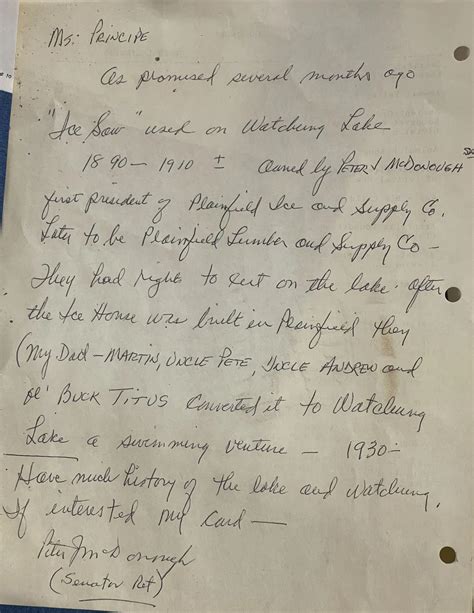 Ms: Principe
As promised several months ago
"Ice Saw" used on Watchung Lake
1890 - 1910 ± owned by Peter J McDonough
first president of Plainfield Ice and Supply Co.
Later to be Plainfield Lumber and Supply Co -
They had right to cut on the lake. after
the Ice House was built in Plainfield they
(My Dad - Martin, Uncle Pete, Uncle Andrew and
ol' Buck Titus converted it to Watchung
Lake a swimming venture - 1930 -
Have much history of the lake and Watchung.
If interested my card -
Peter J McDonough
(Senator Ret)